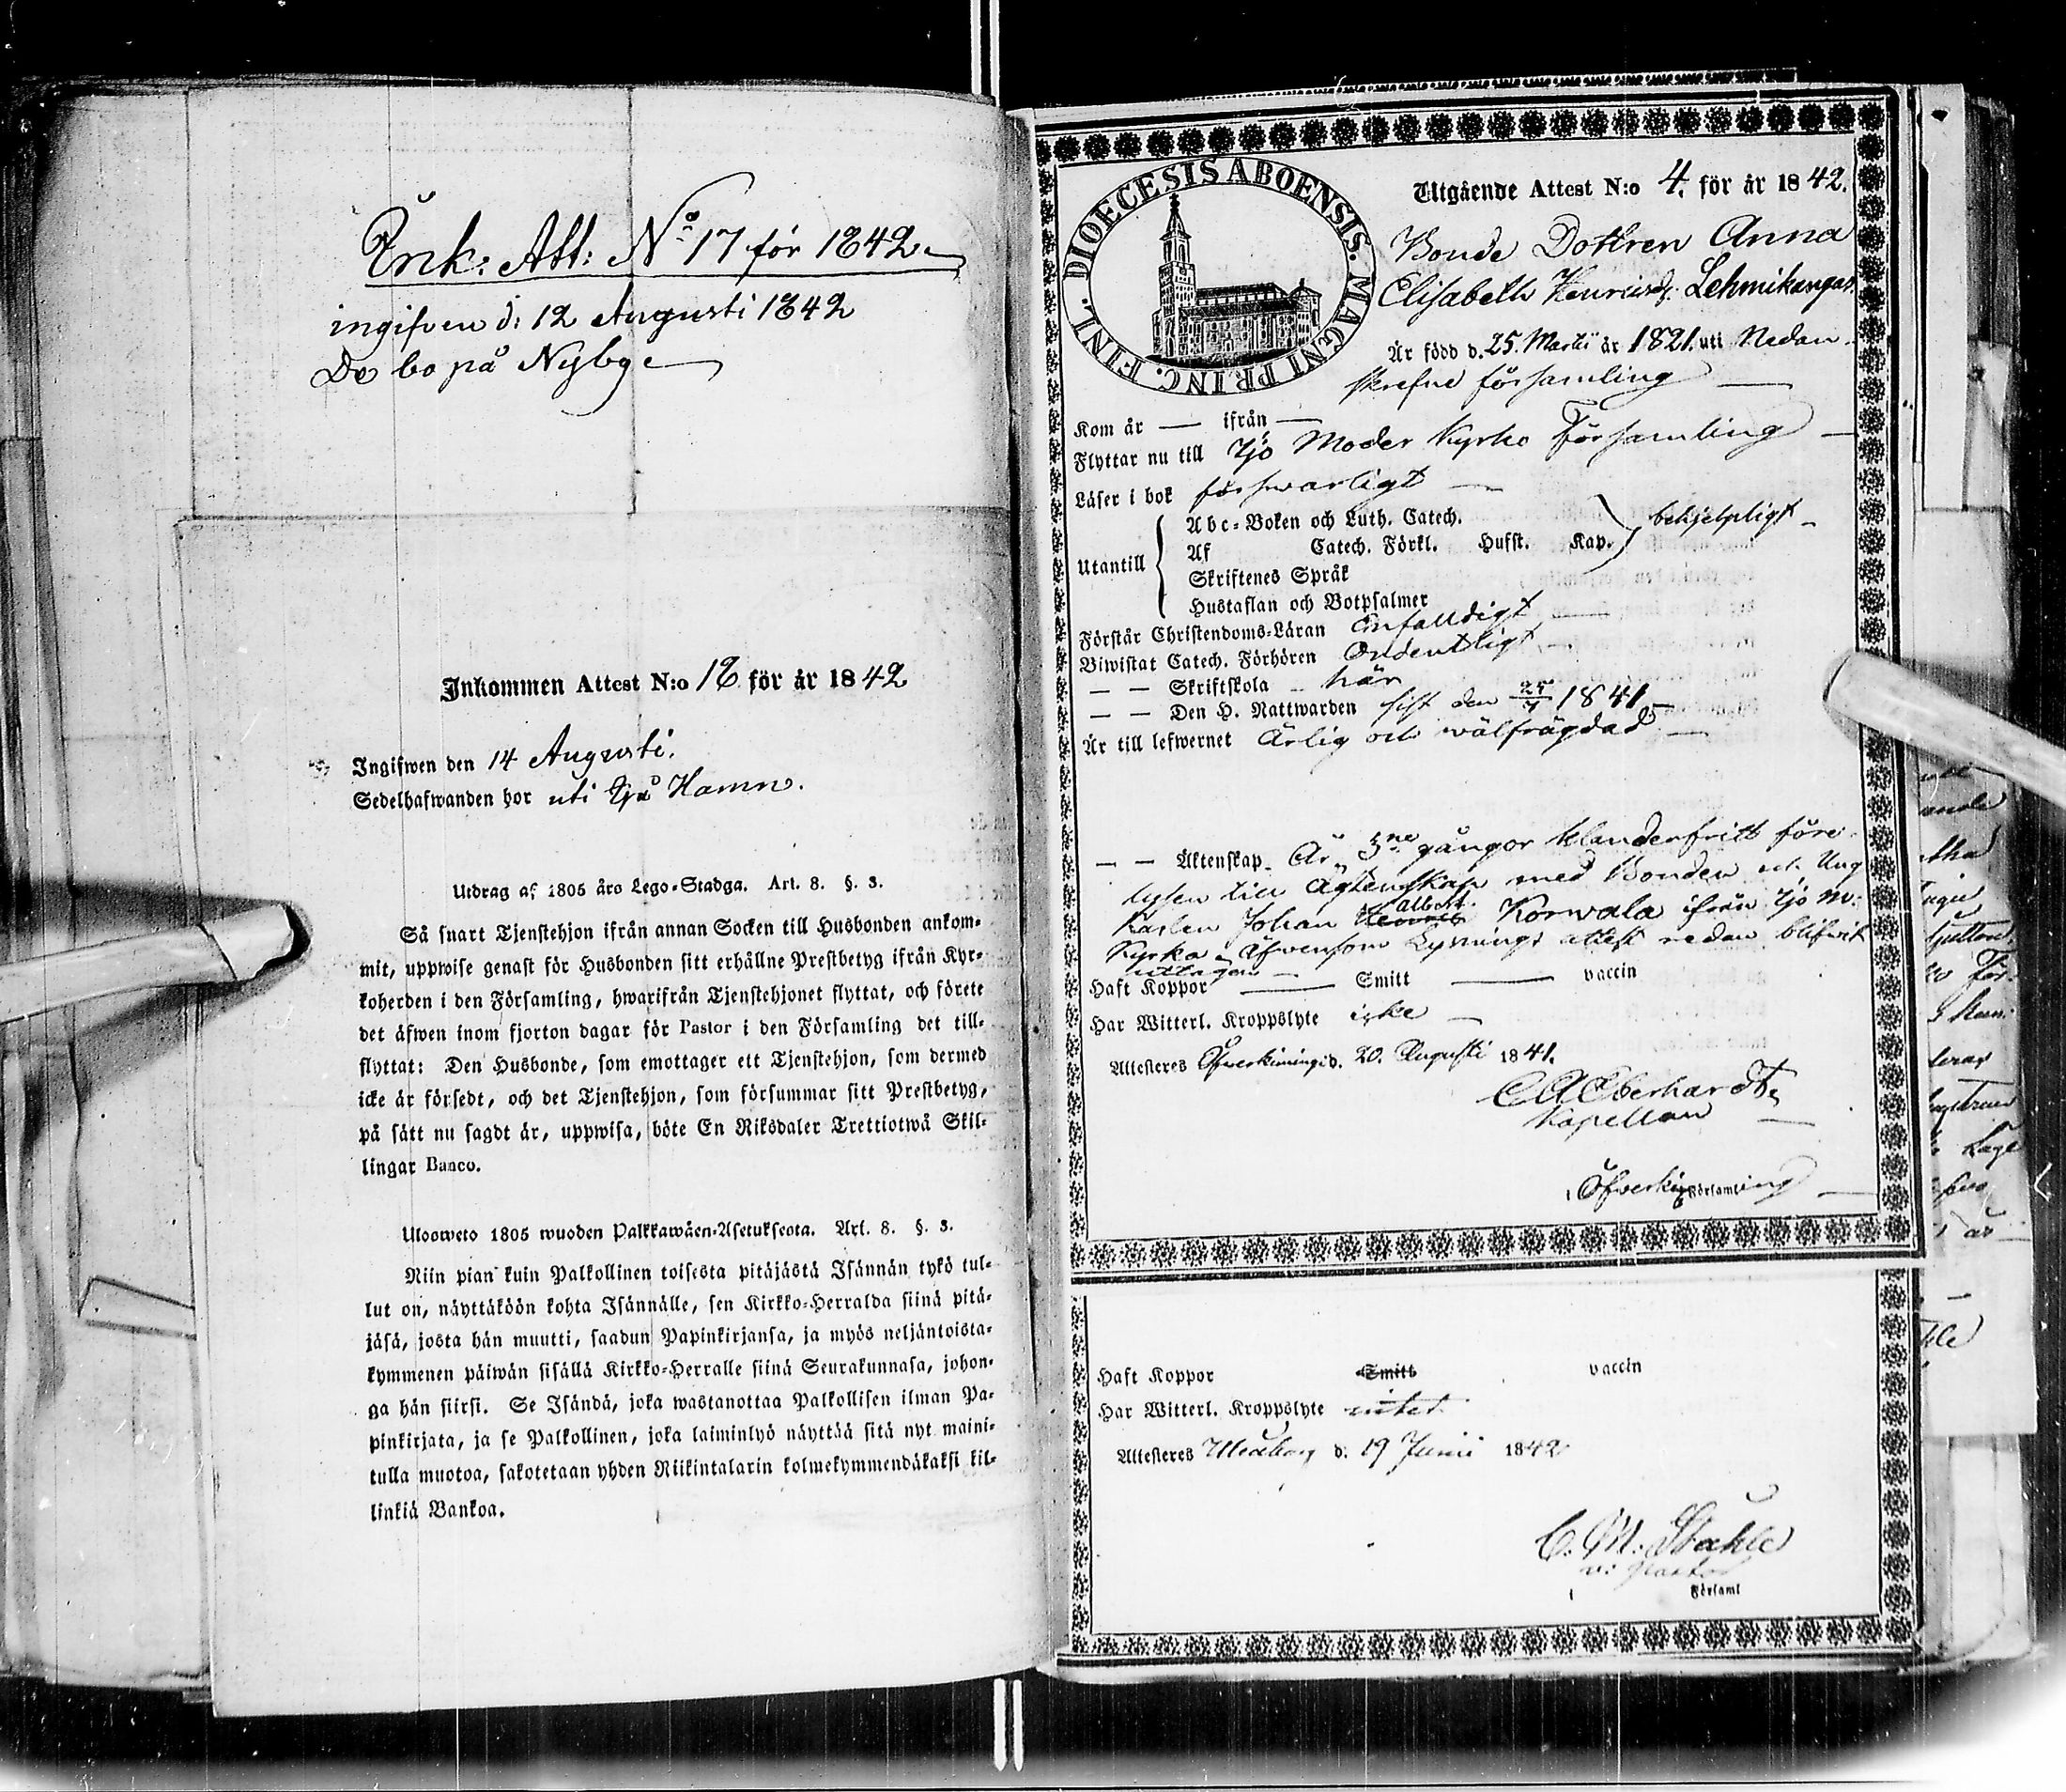 Ink: Att: No 17 för 1842
ingifven d: 12 Augusti 1842
De bo på Nybge
Inkommen Attest N:o 18 för år 1842
Ingifwen den 14 Augusti.
Sedelhafwanden bor uti Ijo Hamn.
Utdrag af 1805 års Lego-Stadga. Art. 8. §. 3.
Så snart Tjenstehjon ifrån annan Socken till Husbonden ankom-
mit, uppwise genast för Husbonden sitt erhållne Prestbetyg ifrån Kyr-
koherden i den Församling, hwarifrån Tjenstehjonet flyttat, och förete
det äfwen inom fjorton dagar för Pastor i den Församling det till-
flyttat: Den Husbonde, som emottager ett Tjenstehjon, som dermed
icke är försedt, och det Tjenstehjon, som försummar sitt Prestbetyg,
på sätt nu sagdt är, uppwisa, böte En Riksdaler Trettiotwå Skil-
lingar Banco.
Ulosweto 1805 wuoden Palkkawäen-Asetuksesta. Art. 8. §. 3.
Niin pian kuin Palkollinen toisesta pitäjästä Isännän tykö tul-
lut on, näyttäköön kohta Isännälle, sen Kirkko-Herralda siinä pitä-
jäsä, josta hän muutti, saadun Papinkirjansa, ja myös neljäntoista-
kymmenen päiwän sisällä Kirkko-Herralle siinä Seurakunnasa, johon-
ga hän siirsi. Se Isändä, joka wastanottaa Palkollisen ilman Pa-
pinkirjata, ja se Palkollinen, joka laiminlyö näyttää sitä nyt maini-
tulla muotoa, sakotetaan yhden Riikintalarin kolmekymmendäkaksi kil-
linkiä Bankoa.
DIOECESIS ABOENSIS. MAGNI PRINC. FINL.
Utgående Attest N:o 4. för år 1842.
Bonde Dottren Anna
Elisabeth Henricsdr. Lehmikangas
Är född d. 25. Martii år 1821. uti Nedan-
skrefne församling
Kom år — ifrån —
Flyttar nu till Ijo Moder Kyrko Församling
Läser i bok försvarligt
Utantill
Abc-Boken och Luth. Catech.
Af Catech. Förkl. Husst. Kap.
Skriftenes Språk
Hustaflan och Botpsalmer
behjelpligt
Förstår Christendoms-Läran Enfalldigt
Biwistat Catech. Förhören Ordentligt
— — Skriftskola här
— — Den H. Nattwarden sist den 25/7 1841
Är till lefwernet ärlig och wälfrägdad
— — Äktenskap. Är 3ne gångor klanderfritt före-
lysen till Ägtenskap med Bonden och Ung
Karlen Johan Albert Korwala ifrån Ijo M:
Kyrka. Äfwensom Lysnings attest redan blifwit
uttagen
Haft Koppor — Smitt — vaccin
Har Witterl. Kroppslyte icke
Attesteres Öfwerkiming d. 20. Augusti 1841.
C A Eberhardt
Kapellan
i Öfwerkiming Församl
Haft Koppor Smitt vaccin
Har Witterl. Kroppslyte intet
Attesteres Uleåborg d. 19 Junii 1842
C. M. Ståhle
v: Pastor
i Församl